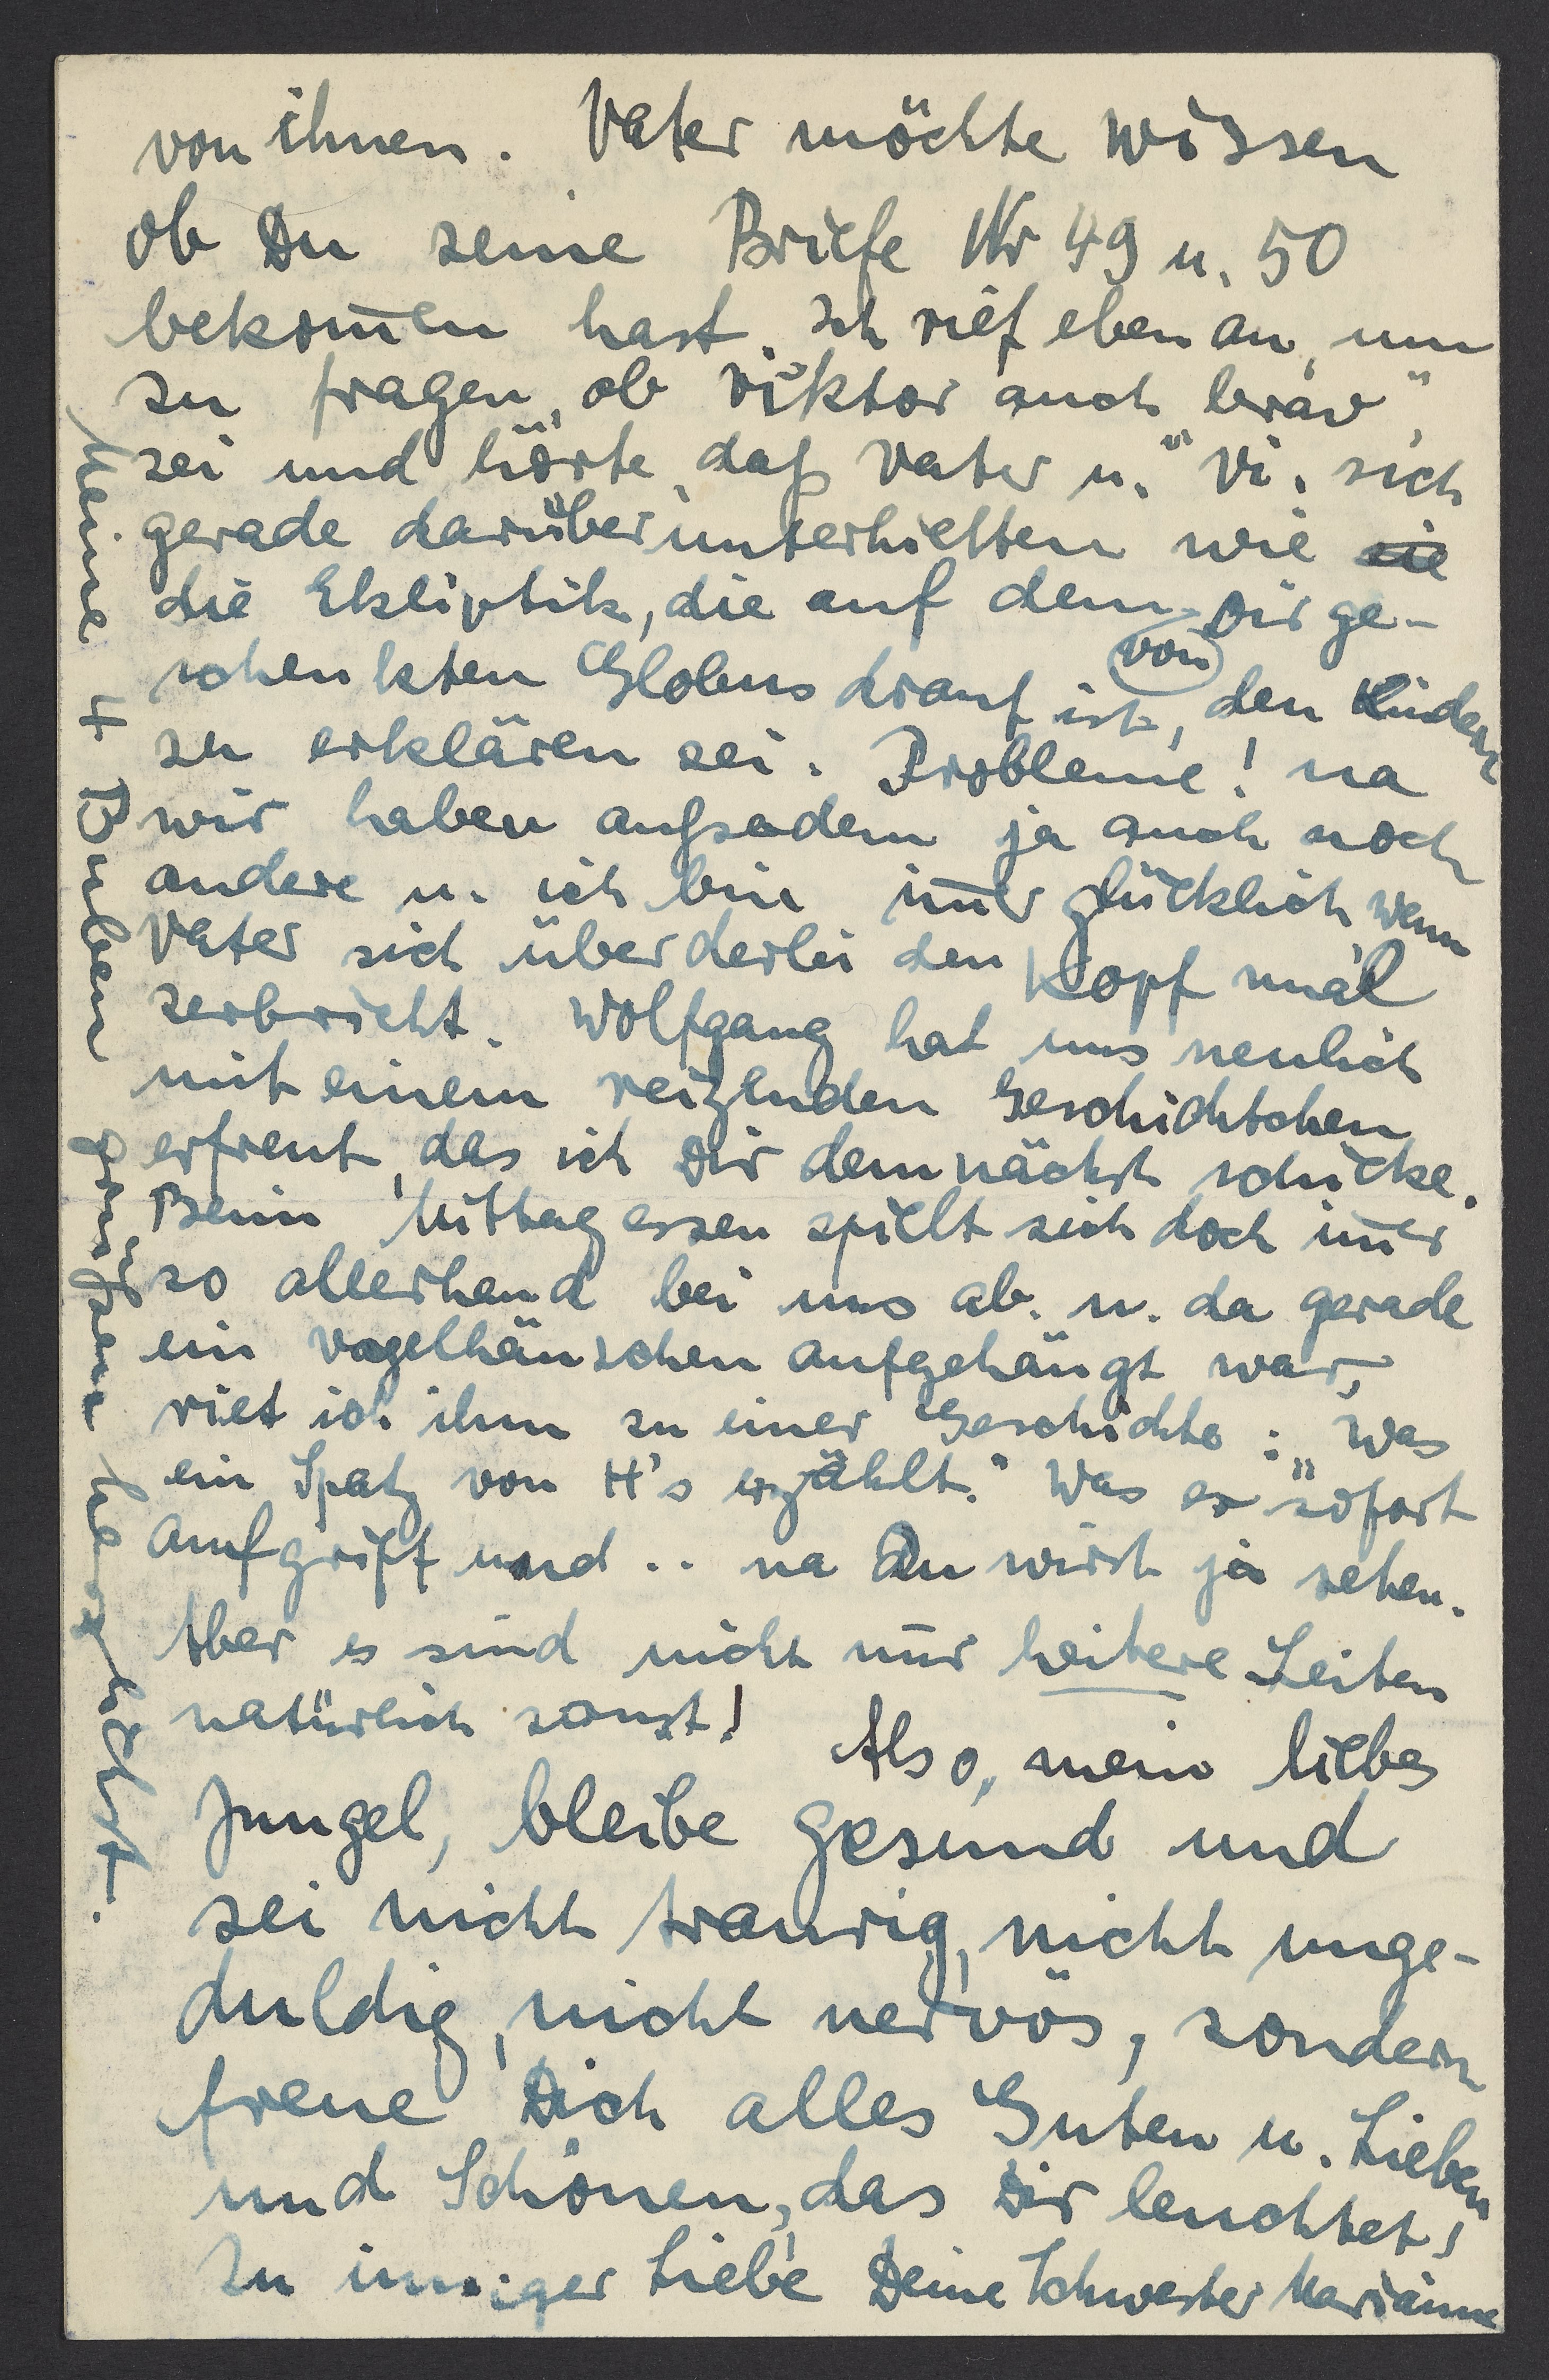 von ihnen. Vater möchte wissen
ob Du seine Briefe Nr 49 u. 50
bekom̅en hast. Ich rief eben an, um
zu fragen, ob Viktor auch "brav"
sei und hörte, daß Vater u. Vi. sich
gerade darüber unterhielten wie
die Ekliptik, die auf dem Dir ge-
von
schenkten Globus drauf ist, den Kindern
zu erklären sei. Probleme! na
wir haben außerdem ja auch noch
andere u. ich bin im̅er glücklich, wenn
Vater sich über derlei den Kopf mal
zerbricht. Wolfgang hat uns neulich
mit einem reizenden Geschichtchen
erfreut, das ich Dir demnächst schicke.
Beim Mittagessen spielt sich doch im̅er
so allerhand bei uns ab. u. da gerade
ein Vogelhäuschen aufgehängt war,
riet ich ihm zu einer Geschichte: "Was
ein Spatz von H's erzählt." Was er sofort
aufgriff und .. na Du wirst ja sehen.
Aber es sind nicht nur heitere Zeiten
natürlich sonst! Also, mein liebes
Jungel, bleibe gesund und
sei nicht traurig, nicht unge-
duldig, nicht nervös, sondern
freue Dich alles Guten u. Lieben
und Schönen, das Dir leuchtet!
In inniger Liebe Deine Schwester Marianne
Meine 4 Buben grüßen herzlichst.